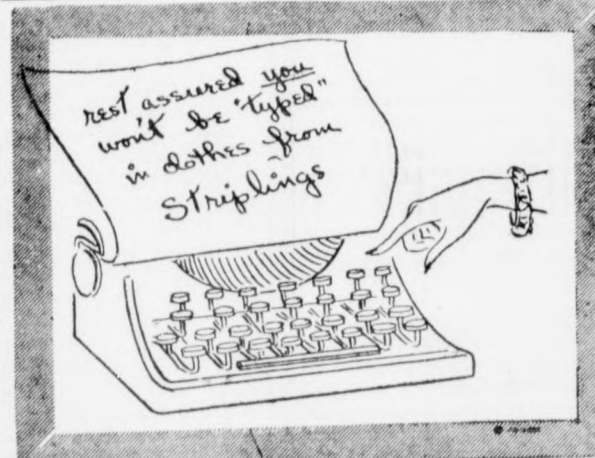 rest assured you
won't be "typed"
in clothes from
Striplings